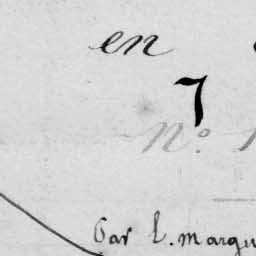 en
7
N.º 1
Par L. margu